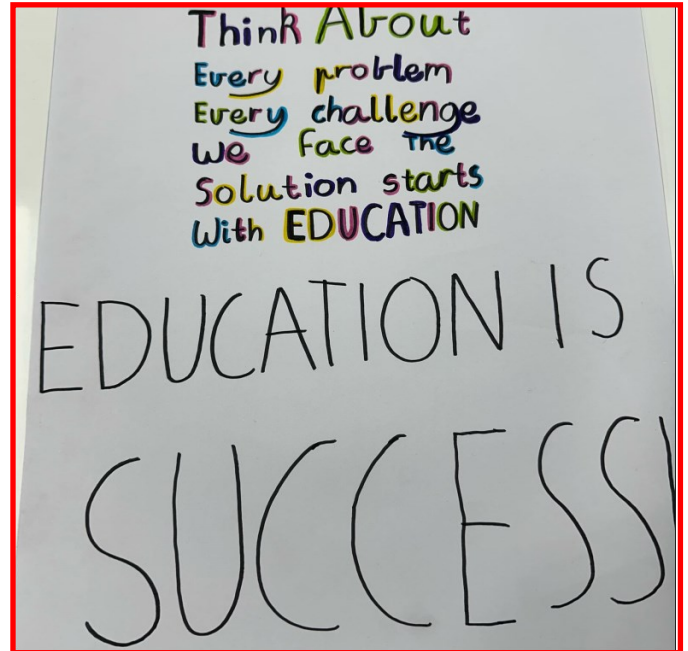 Think About
Every problem
Every challenge
We Face The
Solution starts
With EDUCATION
EDUCATION IS
SUCCESS